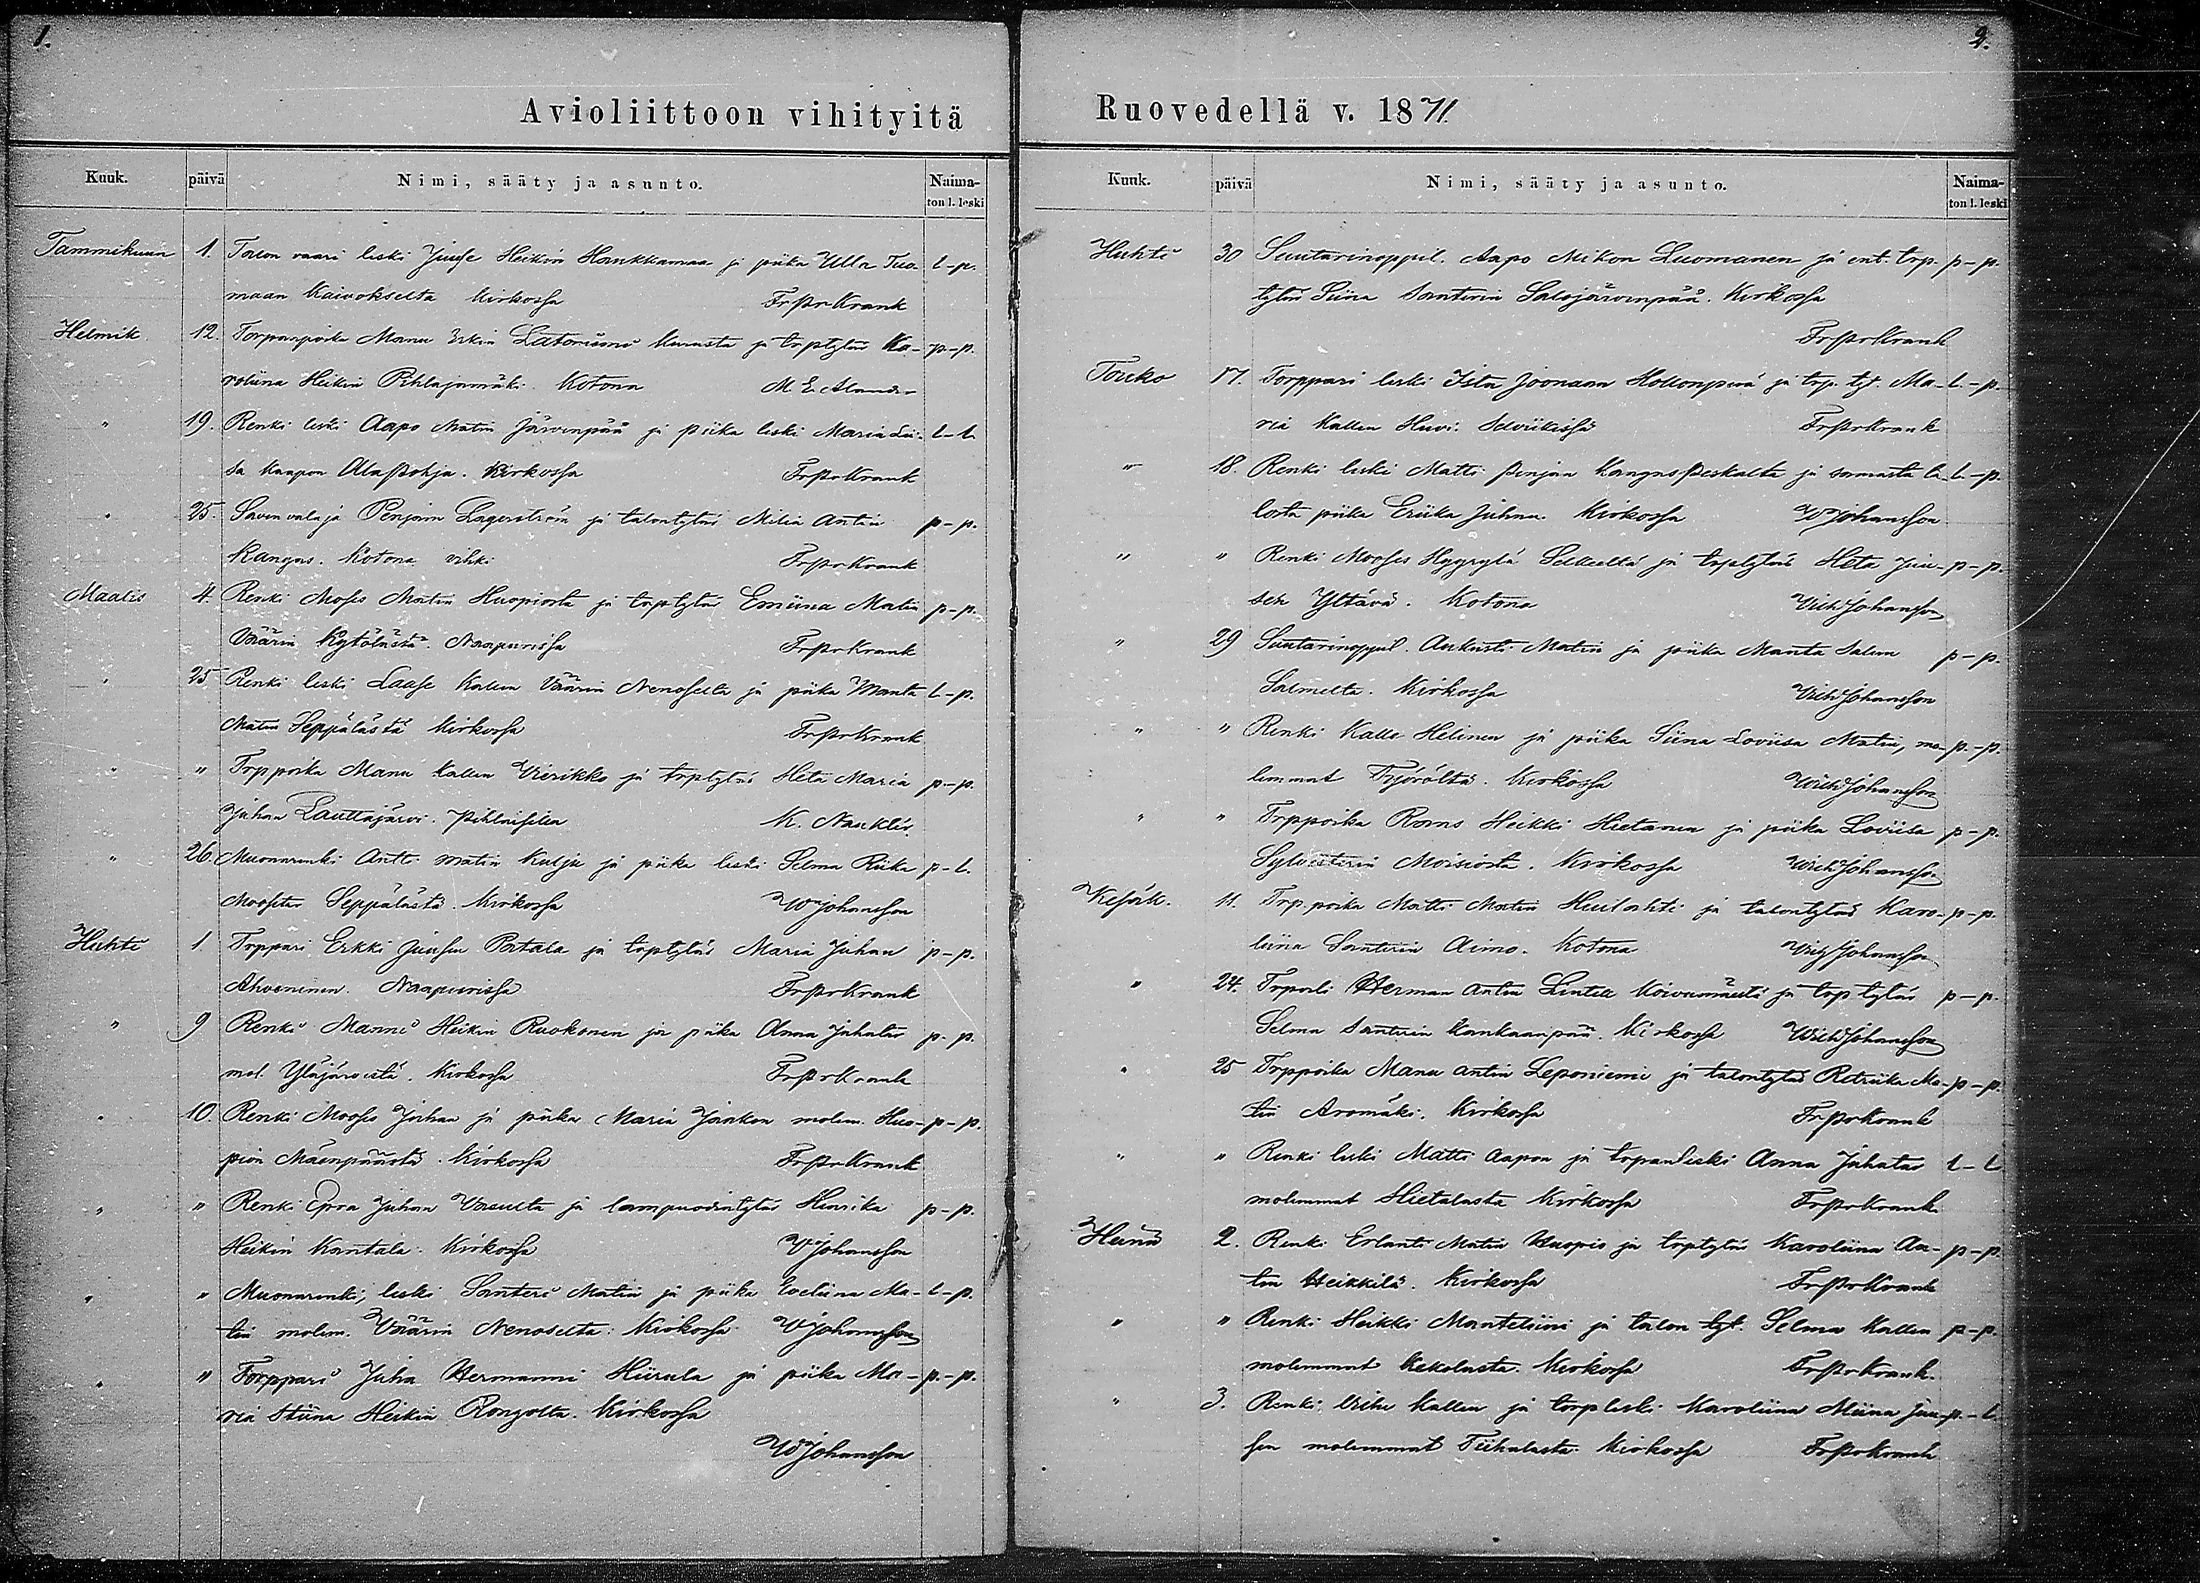 1.
Avioliittoon vihityitä
Kuuk. päivä Nimi, sääty ja asunto. Naima-
ton l. leski
Tammikuun 1. Talon vaari leski Juuse Heikin Hankkamaa ja piika Ulla Tuo- l-p.
maan Kaivokselta Kirkossa Fr Br Krank
Helmik. 12. Torpanpoika Manu Erkin Latoriemi Murusta ja trptytär Ka- p-p.
roliina Heikin Pihlajamäki. Kotona M. E. Alander
" 19. Renki leski Aapo Matin Järvenpää ja piika leski Maria Lii- l-l.
sa Kaapon Alapohja. Kirkossa Fr Br Krank
" 25. Saven valaja Penjam Lagerström ja talontytär Milia Antin p-p.
Kangas. Kotona vihki Fr Br Krank
Maalis 4. Renki Moses Matin Huopiosta ja trptytär Emiina Matin p-p.
Väärin Kytölästä. Naapurissa Fr Br Krank
" 25 Renki leski Laase Kallen Väärin Nenoselta ja piika Manta l-p.
Matin Seppälästä Kirkossa Fr Br Krank
" " Trppoika Manu Kallen Vierikko ja trptytär Heta Maria p-p.
Juhan Lauttajärvi. K. Nauklér.
" 26. Muonarenki Antti Matin Kulju ja piika leski Selma Riika p-l.
Mooseter Seppälästä. Kirkossa W Johansson
Huhti 1. Trppari Erkki Juusen Patala ja trptytär Maria Juhan p-p.
Ahveninen. Naapurissa Fr Br Krank
" 9 Renki Manni Heikin Ruokonen ja piika Anna Juhatar p-p.
mol. Yläjärvistä. Kirkossa Fr Br Krank
" 10. Renki Mooses Juhan ja piika Maria Jaakon molem. Huo- p-p.
pion Mäenpäästä. Kirkossa Fr Br Krank
" " Renki Epra Juhan Vasulta ja lampuodintytär Henrika p-p.
Heikin Kantala. Kirkossa W Johansson
" " Muonarenki, leski Santeri Matin ja piika Eveliina Ma- l-p.
tin molem. Väärin Nenoselta. Kirkossa W Johansson
" " Torppari Juha Hermanni Hiirula ja piika Ma- p-p.
ria Stiina Heikin Rongolta. Kirkossa
W Johansson
2.
Ruovedellä v. 1871.
Kuuk. päivä Nimi, sääty ja asunto. Naima-
ton l. leski
Huhti 30 Suutarinoppil. Aapo Mikon Luomanen ja ent. trp. p-p.
tytär Siina Santerin Salojärvenpää. Kirkossa
Fr Br Krank
Touko 17. Torppari leski Joonaan Hollonperä ja trp. tyt. Ma- l.-p.
ria Kallen Huvi. Selviikissä Fr Br Krank
" 18. Renki leski Matti Penjan Kangas Peskalta ja samasta ta- l-p.
losta piika Eriika Juhan. Kirkossa W Johansson
" " Renki Mooses Hyyrylä Selkeeltä ja trptytär Heta Juu- p-p.
sen Yltävä. Kotona Wilh Johansson
" 29 Suutarinoppil. Aukusti Matin ja piika Manta Salem p-p.
Salmelta. Kirkossa Wilh Johansson
" " Renki Kalle Helinen ja piika Siina Loviisa Matin, mo- p.-p.
lemmat Työröltä. Kirkossa Wilh Johansson
" " Trppoika Rans Heikki Hietanen ja piika Loviisa p-p.
Sylvesterin Moisiosta. Kirkossa Wilh Johansson
Kesäk. 11. Trp. poika Matti Matin Huilahti ja talontytär Karo- p-p.
liina Santerin Aimo. Kotona Wilh Johansson
" 24. Herman Antin Lintell Koivumäestä ja trp tytär p-p.
Selma Santerin Kankaanpää. Kirkossa Wilh Johansson
" 25 Trppoika Manu Antin Leponiemi ja talontytär Retriika Ma- p-p.
tin Aromäki. Kirkossa Fr Br Krank
" " Renki leski Matti Aapon ja trpanleski Anna Juhatar l-l
molemmat Hietalasta Kirkossa Fr Br Krank
Heinä 2. Renki Erlanti Matin Huopio ja trptytär Karoliina An- p-p.
tin Heikkilä. Kirkossa Fr Br Krank
" " Renki Heikki Manteliini ja talon tyt. Selma Kallen p-p.
molemmat Kekolasta. Kirkossa Fr Br Krank.
" 3. Renki Vihe Kallen ja torpleski Karoliina Miina Juu- p.-l
sen molemmat Tiihalasta. Kirkossa Fr Br Krank